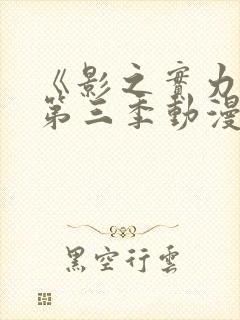 《影之實力
第三季動漫
黑空行雲